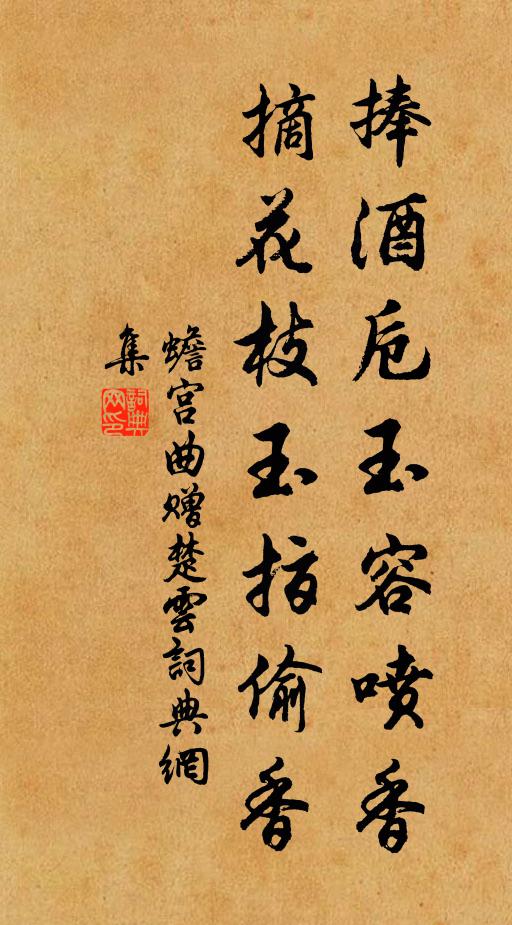 捧酒卮玉容喷香
摘花枝玉指偷香
蟾宫曲赠楚雲詞典網
集
詞典
网印